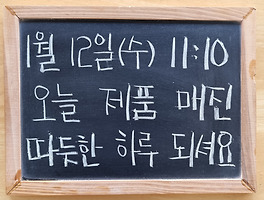 1월 12일(수) 11:10
오늘 제품 매진
따듯한 하루 되셔요